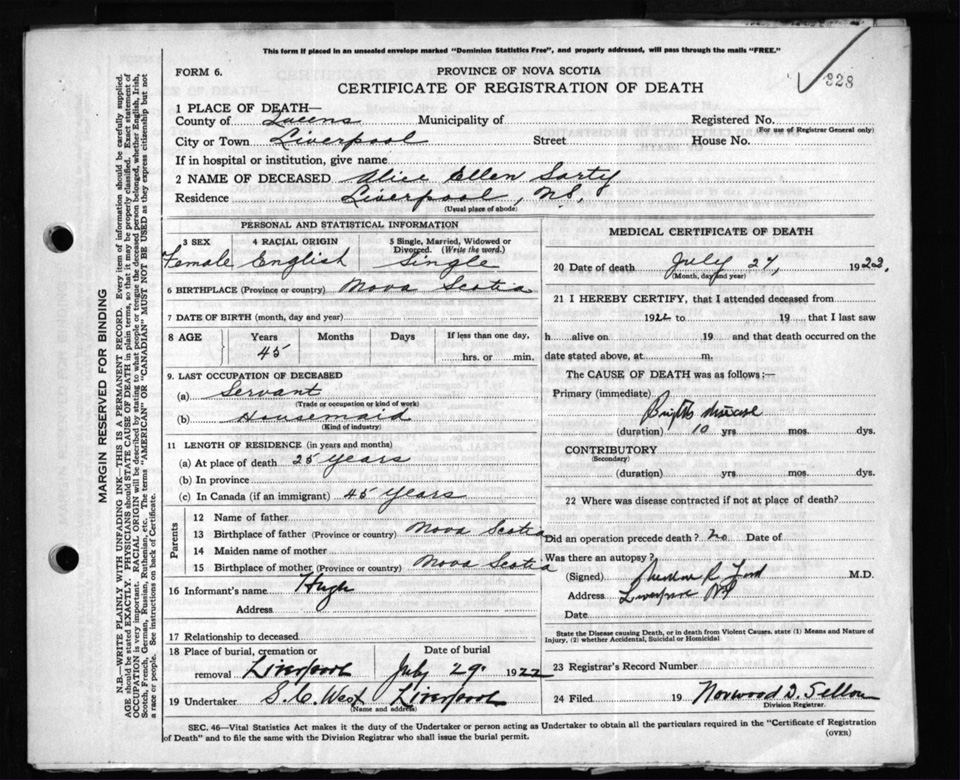 This form if placed in an unsealed envelope marked "Dominion Statistics Free", and properly addressed, will pass through the mails "FREE."
328
FORM 6.
PROVINCE OF NOVA SCOTIA
CERTIFICATE OF REGISTRATION OF DEATH
1 PLACE OF DEATH—
County of Queens Municipality of Registered No.
(For use of Registrar General only)
City or Town Liverpool Street House No.
If in hospital or institution, give name
2 NAME OF DECEASED Alice Ellen Sarty
Residence Liverpool, N.S.
(Usual place of abode)
PERSONAL AND STATISTICAL INFORMATION
3 SEX 4 RACIAL ORIGIN 5 Single, Married, Widowed or Divorced. (Write the word.)
Female English Single
6 BIRTHPLACE (Province or country) Nova Scotia
7 DATE OF BIRTH (month, day and year)
8 AGE Years Months Days If less than one day,
45 hrs. or min.
9. LAST OCCUPATION OF DECEASED
(a) Servant
(Trade or occupation or kind of work)
(b) Housemaid
(Kind of industry)
11 LENGTH OF RESIDENCE (in years and months)
(a) At place of death 25 years
(b) In province
(c) In Canada (if an immigrant) 45 years
Parents
12 Name of father
13 Birthplace of father (Province or country) Nova Scotia
14 Maiden name of mother
15 Birthplace of mother (Province or country) Nova Scotia
16 Informant's name Hugh
Address
17 Relationship to deceased
18 Place of burial, cremation or removal Liverpool Date of burial July 29, 1922
19 Undertaker S.C. West Liverpool
(Name and address)
MEDICAL CERTIFICATE OF DEATH
20 Date of death July 27, 1922.
(Month, day and year)
21 I HEREBY CERTIFY, that I attended deceased from
1922 to 19 that I last saw
h alive on 19 and that death occurred on the
date stated above, at m.
The CAUSE OF DEATH was as follows:—
Primary (immediate)
Brights disease
(duration) 10 yrs mos. dys.
CONTRIBUTORY
(Secondary)
(duration) yrs mos. dys.
22 Where was disease contracted if not at place of death?
Did an operation precede death? no Date of
Was there an autopsy?
(Signed) Theodore R. Ford M.D.
Address Liverpool NS
Date
State the Disease causing Death, or in death from Violent Causes, state (1) Means and Nature of
Injury, (2) whether Accidental, Suicidal or Homicidal
23 Registrar's Record Number
24 Filed 19 Norwood D. Sellon
Division Registrar.
SEC. 46—Vital Statistics Act makes it the duty of the Undertaker or person acting as Undertaker to obtain all the particulars required in the "Certificate of Registration
of Death" and to file the same with the Division Registrar who shall issue the burial permit.
(OVER)
MARGIN RESERVED FOR BINDING
N.B.—WRITE PLAINLY WITH UNFADING INK—THIS IS A PERMANENT RECORD. Every item of information should be carefully supplied.
AGE should be stated EXACTLY. PHYSICIANS should STATE CAUSE OF DEATH in plain terms, so that it may be properly classified. Exact statement of
OCCUPATION is very important. RACIAL ORIGIN will be described by stating to what people or tongue the deceased person belonged, whether English, Irish,
Scotch, French, German, Russian, Ruthenian, etc. The terms "AMERICAN" OR "CANADIAN" MUST NOT BE USED as they express citizenship but not
a race or people. See instructions on back of Certificate.